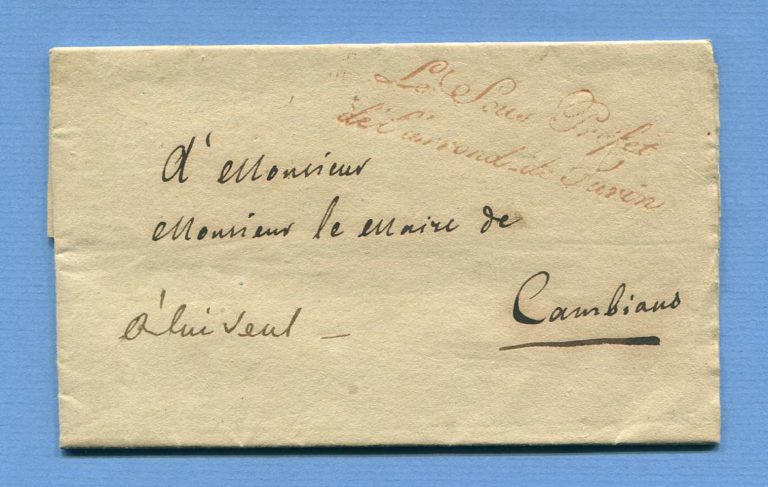 Le Sous Préfet
de l'arrond. de Turin
A Monsieur
Monsieur le Maire de
Cambiano
à lui seul